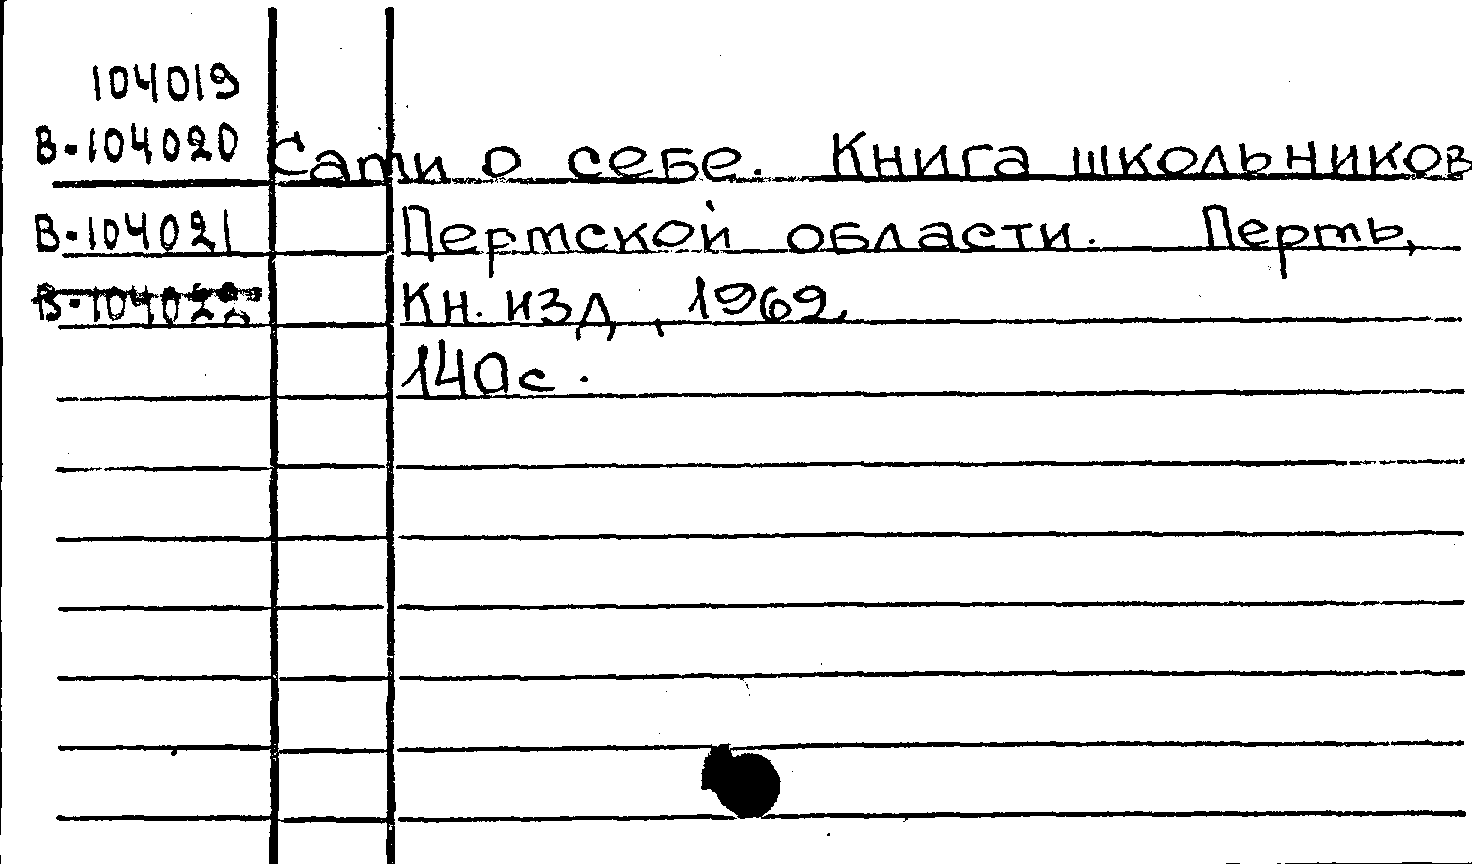 104019
В-104020 Сами о себе. Книга школьников
В-104021 Пермской области. Пермь,
В-104022 Кн. изд, 1969.
140с.